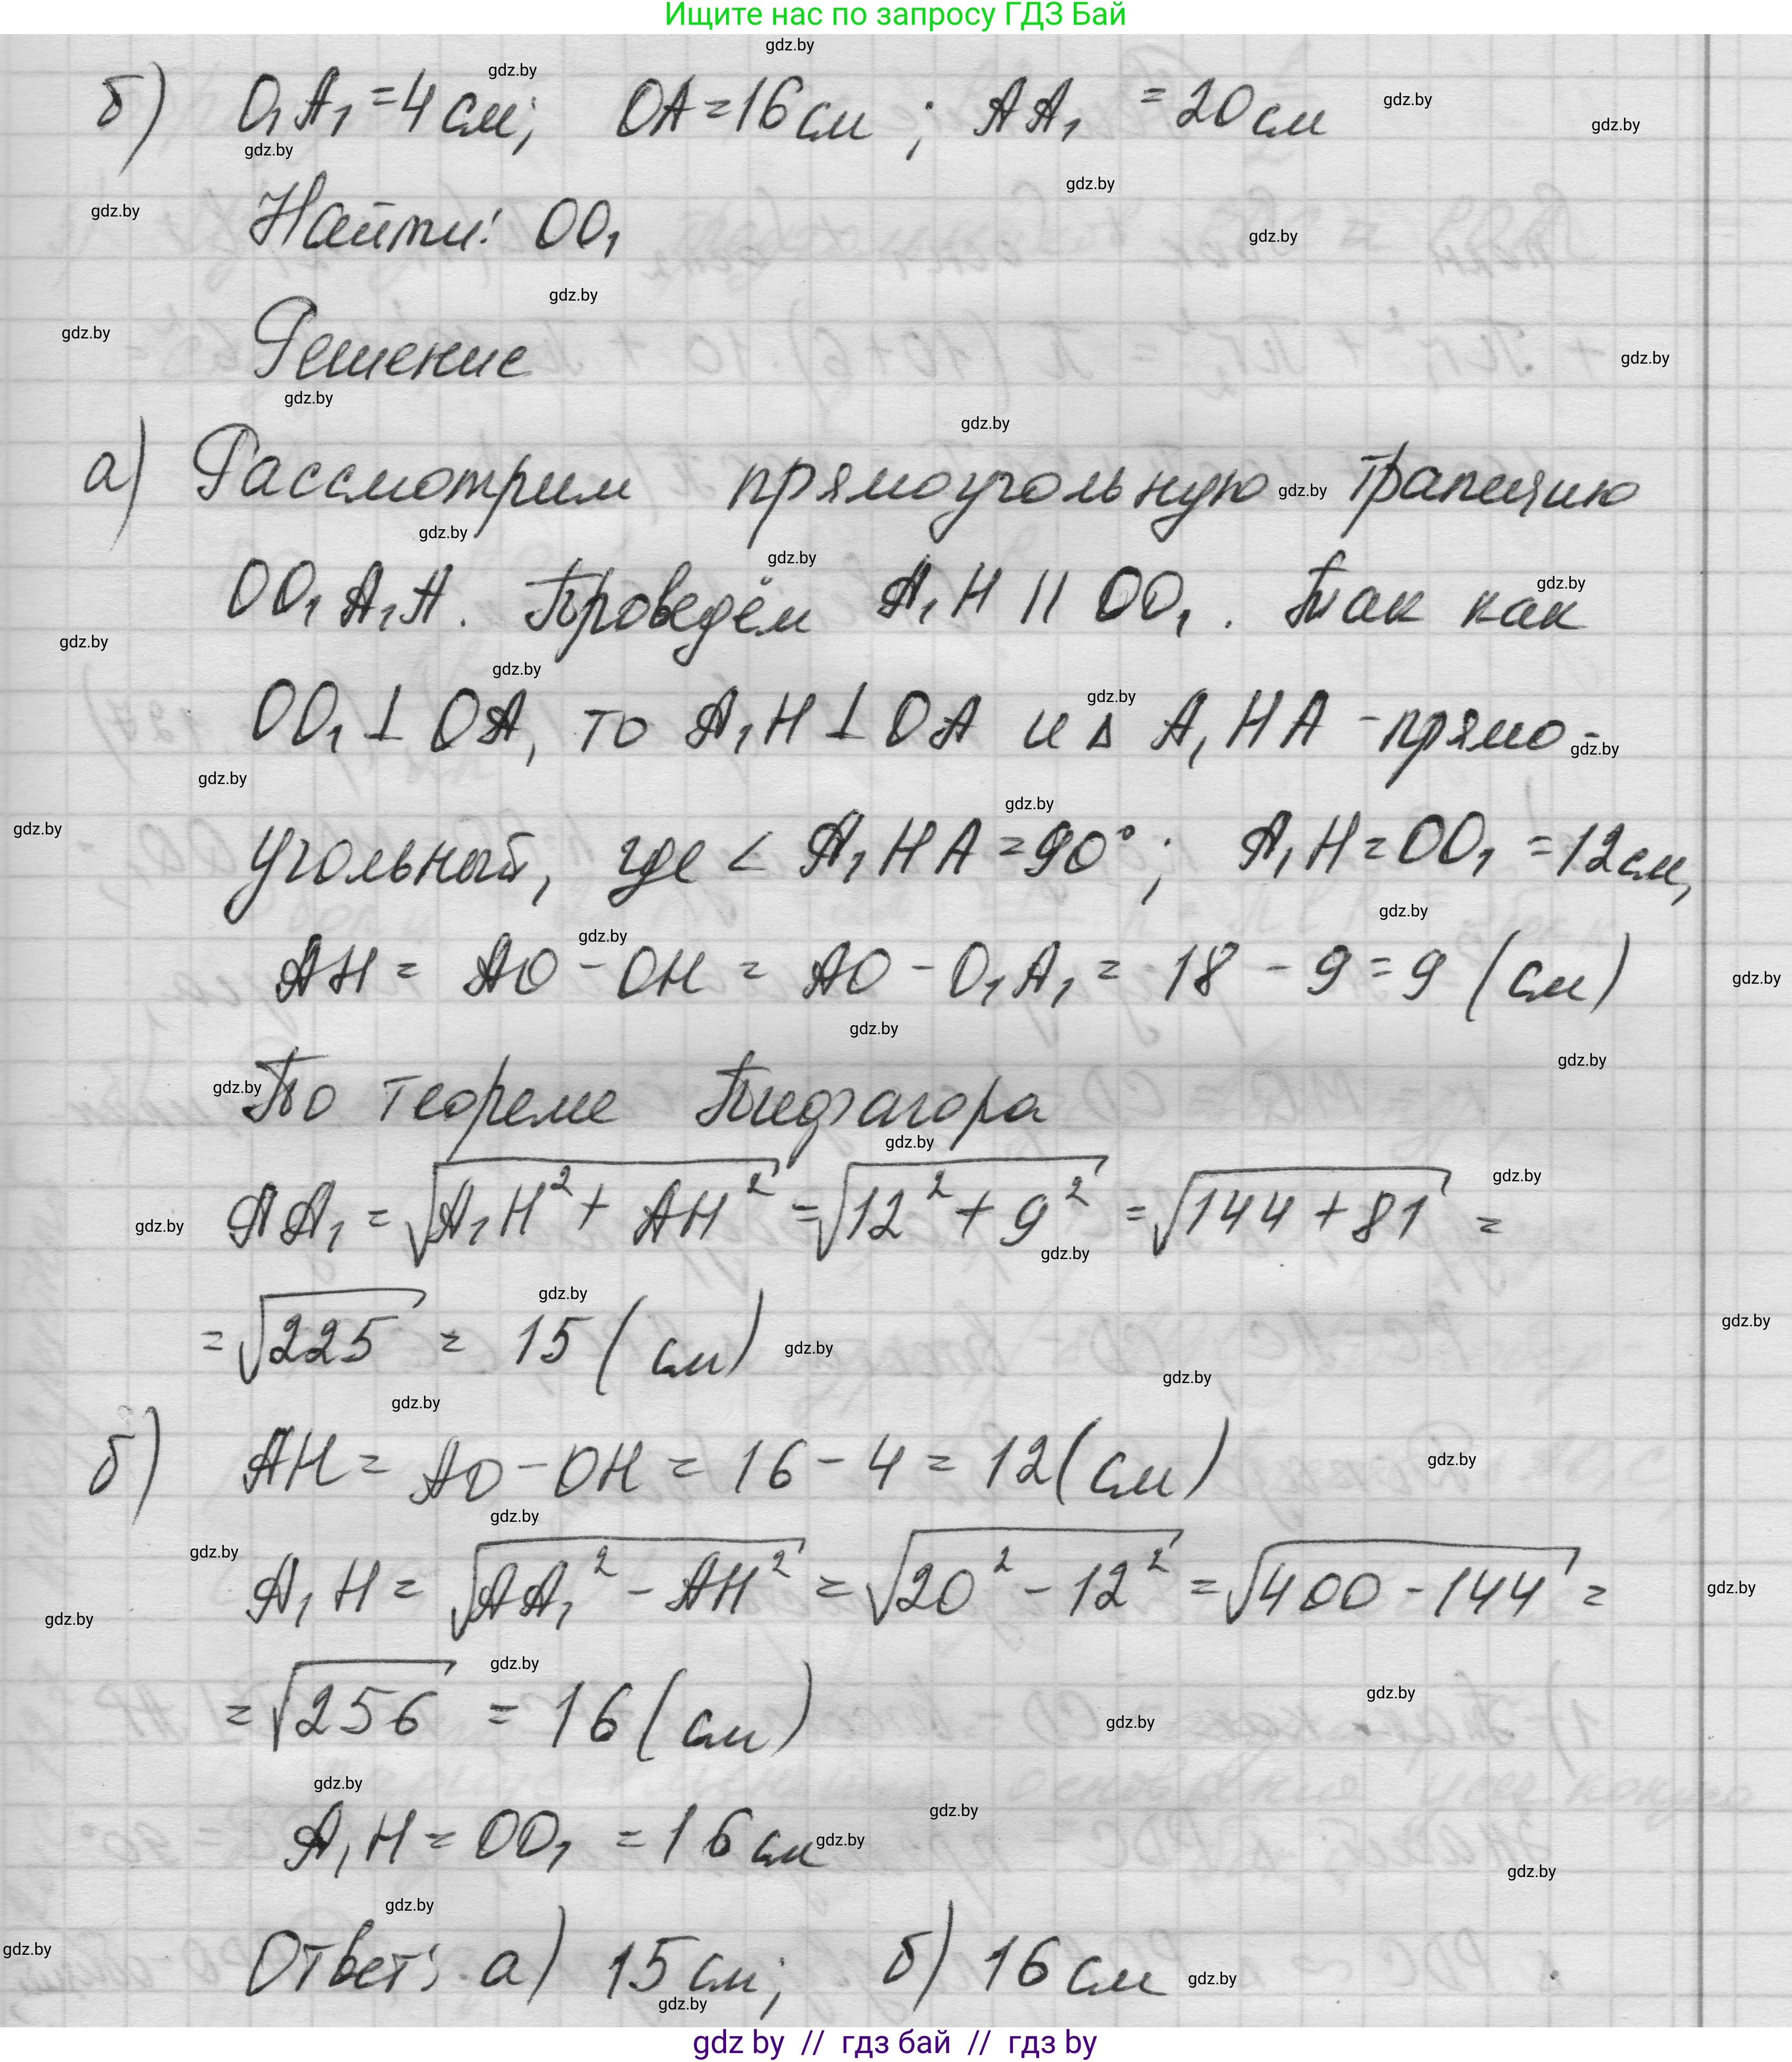 Ищите нас по запросу ГДЗ Бай
б) O₁A₁ = 4 см; OA = 16 см; AA₁ = 20 см
Найти: OO₁
Решение
а) Рассмотрим прямоугольную трапецию
OO₁A₁A. Проведём A₁H || OO₁. Так как
OO₁ ⊥ OA, то A₁H ⊥ OA и Δ A₁HA - прямо-
угольный, где < A₁HA = 90°; A₁H = OO₁ = 12 см,
AH = AO - OH = AO - O₁A₁ = 18 - 9 = 9 (см)
По теореме Пифагора
AA₁ = √(A₁H² + AH²) = √(12² + 9²) = √(144 + 81) =
= √225 = 15 (см)
б) AH = AO - OH = 16 - 4 = 12 (см)
A₁H = √(AA₁² - AH²) = √(20² - 12²) = √(400 - 144) =
= √256 = 16 (см)
A₁H = OO₁ = 16 см
Ответ: а) 15 см; б) 16 см
gdz by // гдз бай // гдз by